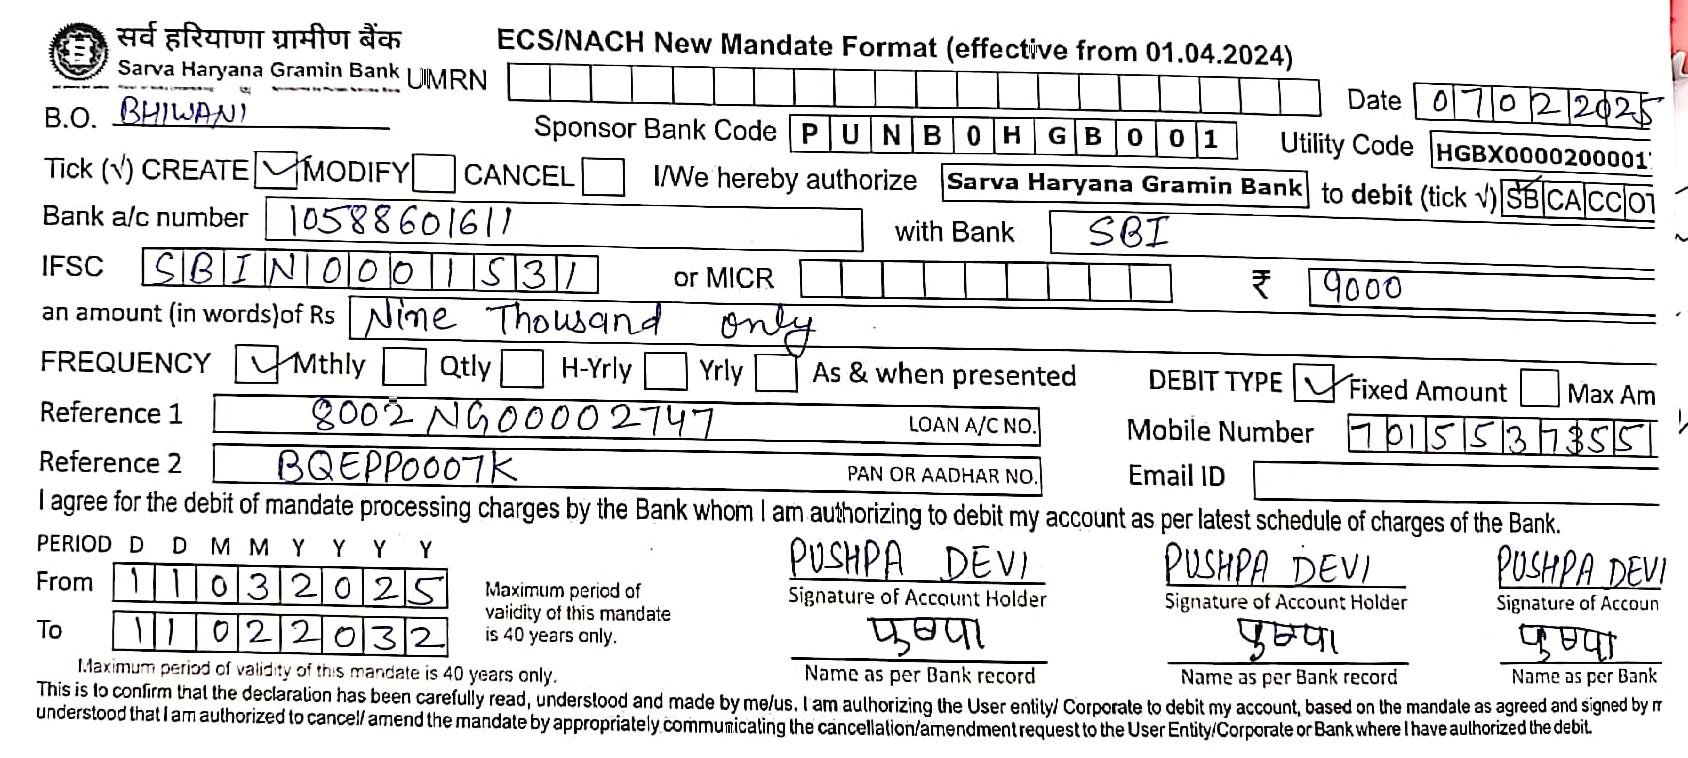 सर्व हरियाणा ग्रामीण बैंक
Sarva Haryana Gramin Bank
ECS/NACH New Mandate Format (effective from 01.04.2024)
UMRN
Date 07022025
B.O. BHIWANI
Sponsor Bank Code PUNB0HGB001
Utility Code HGBX0000200001
Tick (√) CREATE ✓ MODIFY CANCEL I/We hereby authorize Sarva Haryana Gramin Bank to debit (tick √) SB CA CC OT
Bank a/c number 10588601611 with Bank SBI
IFSC SBIN0001531 or MICR ₹ 9000
an amount (in words)of Rs Nine Thousand only
FREQUENCY ✓ Mthly Qtly H-Yrly Yrly As & when presented DEBIT TYPE ✓ Fixed Amount Max Am
Reference 1 8002NG00002747 LOAN A/C NO. Mobile Number 7015537355
Reference 2 BQEPP0007K PAN OR AADHAR NO. Email ID
I agree for the debit of mandate processing charges by the Bank whom I am authorizing to debit my account as per latest schedule of charges of the Bank.
PERIOD D D M M Y Y Y Y
From 11032025
To 11022032
Maximum period of
validity of this mandate
is 40 years only.
PUSHPA DEVI PUSHPA DEVI PUSHPA DEVI
Signature of Account Holder Signature of Account Holder Signature of Accoun
पुष्पा पुष्पा पुष्पा
Name as per Bank record Name as per Bank record Name as per Bank
Maximum period of validity of this mandate is 40 years only.
This is to confirm that the declaration has been carefully read, understood and made by me/us. I am authorizing the User entity/ Corporate to debit my account, based on the mandate as agreed and signed by m
understood that I am authorized to cancel/ amend the mandate by appropriately communicating the cancellation/amendment request to the User Entity/Corporate or Bank where I have authorized the debit.